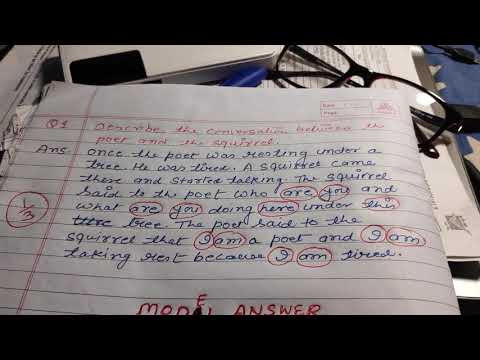 Date
Page
Q1 Describe the conversation between the
poet and the squirrel.
Ans once the poet was resting under a
tree. He was tired. A squirrel came
there and started talking. The squirrel
said to the poet who are you and
what are you doing here under this
tree. The poet said to the
squirrel that I am a poet and I am
taking rest because I am tired.
1/3
MODEL ANSWER